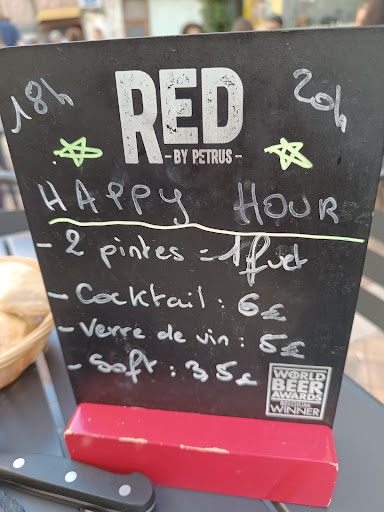 18h
20h
RED
- BY PETRUS -
HAPPY HOUR
- 2 pintes = 1 fuet
- Cocktail : 6€
- Verre de vin : 5€
- Soft : 3,5€
WORLD
BEER
AWARDS
BELGIUM
WINNER